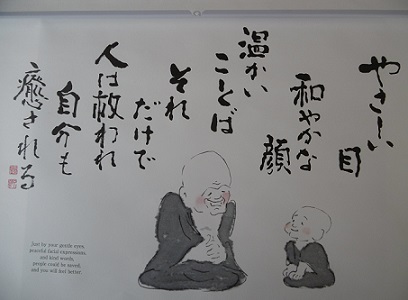 やさしい
目
和やかな
顔
温かい
ことば
それ
だけで
人は救われ
自分も
癒される
Just by your gentle eyes,
peaceful facial expressions,
and kind words,
people could be saved,
and you will feel better.